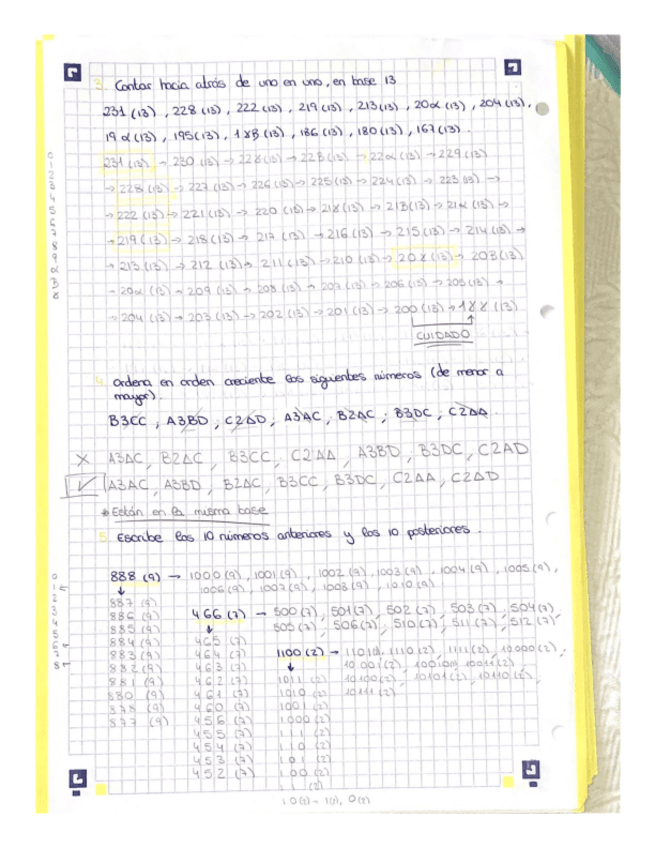 3. Contar hacia atrás de uno en uno, en base 13
231 (13), 228 (13), 222 (13), 219 (13), 213 (13), 20α (13), 204 (13),
19α (13), 195 (13), 1γB (13), 186 (13), 180 (13), 167 (13).
231 (13) → 230 (13) → 22γ (13) → 22B (13) → 22α (13) → 229 (13)
→ 228 (13) → 227 (13) → 226 (13) → 225 (13) → 224 (13) → 223 (13) →
→ 222 (13) → 221 (13) → 220 (13) → 21γ (13) → 21B (13) → 21α (13) →
→ 219 (13) → 218 (13) → 217 (13) → 216 (13) → 215 (13) → 214 (13) →
→ 213 (13) → 212 (13) → 211 (13) → 210 (13) → 20γ (13) → 20B (13)
→ 20α (13) → 209 (13) → 208 (13) → 207 (13) → 206 (13) → 205 (13) →
→ 204 (13) → 203 (13) → 202 (13) → 201 (13) → 200 (13) → 1γγ (13)
CUIDADO
0
1
2
3
4
5
6
7
8
9
α
B
γ
4. Ordena en orden creciente los siguientes números (de menor a
mayor).
B3CC, A3BD, C2AD, A3AC, B2AC, B3DC, C2AA
X A3AC, B2AC, B3CC, C2AA, A3BD, B3DC, C2AD
✓ A3AC, A3BD, B2AC, B3CC, B3DC, C2AA, C2AD
* Están en la misma base
5. Escribe los 10 números anteriores y los 10 posteriores.
0
1
2
3
4
5
6
7
8
888 (9) → 1000 (9), 1001 (9), 1002 (9), 1003 (9), 1004 (9), 1005 (9),
1006 (9), 1007 (9), 1008 (9), 1010 (9)
↓
887 (9)
886 (9)
885 (9)
884 (9)
883 (9)
882 (9)
881 (9)
880 (9)
878 (9)
877 (9)
466 (7) → 500 (7), 501 (7), 502 (7), 503 (7), 504 (7),
505 (7), 506 (7), 510 (7), 511 (7), 512 (7)
↓
465 (7)
464 (7)
463 (7)
462 (7)
461 (7)
460 (7)
456 (7)
455 (7)
454 (7)
453 (7)
452 (7)
1100 (2) → 1101 1110 (2), 1111 (2), 10000 (2),
10001 (2), 10011 (2),
10100 (2), 10101 (2), 10110 (2),
10111 (2)
↓
1011 (2)
1010 (2)
1001 (2)
1000 (2)
111 (2)
110 (2)
101 (2)
100 (2)
11 (2)
10 (2) - 1 (2), 0 (2)